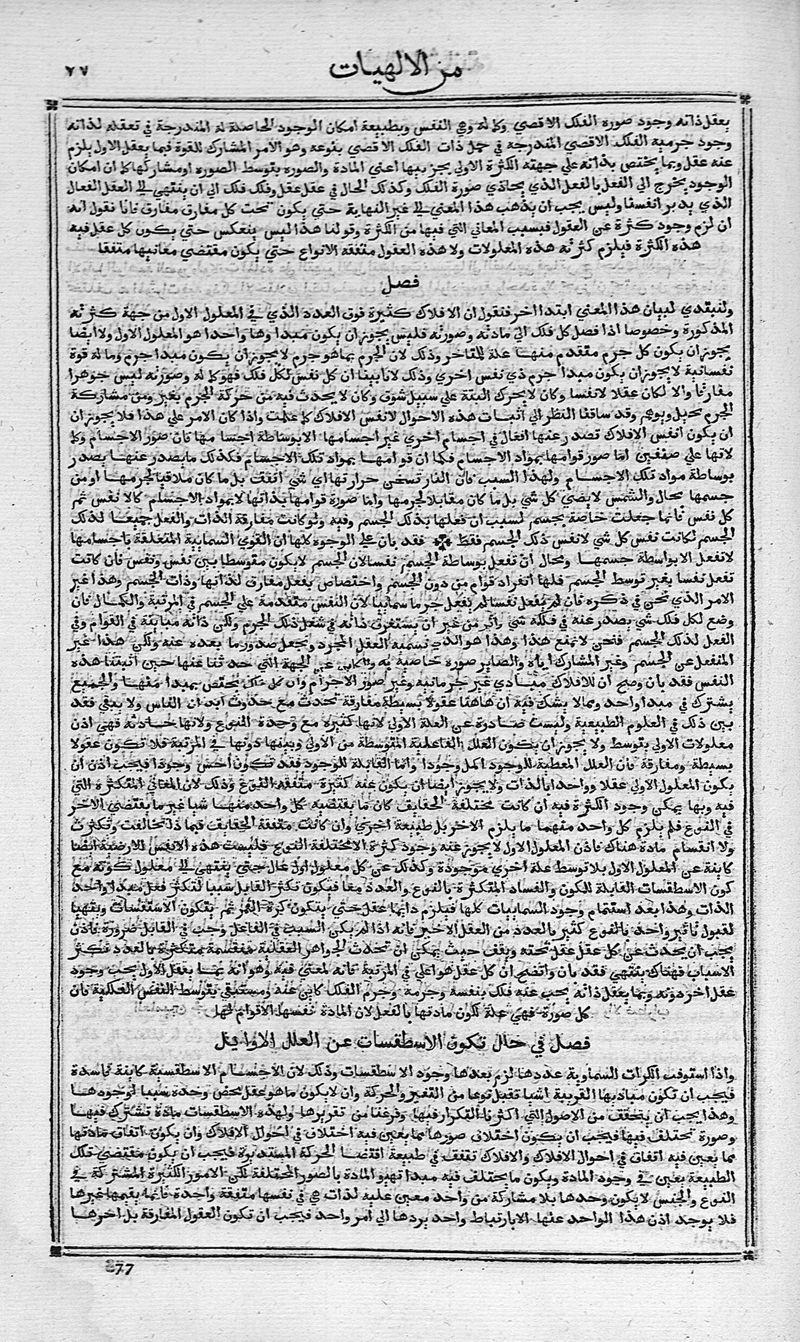 من الالهيات
٧٧
يعقل ذاته وجود صورة الفلك الاقصي وكماله وهي النفس وبطبيعة امكان الوجود الحاصلة له المندرجة في تعقله لذاته
وجود جرمية الفلك الاقصي المندرجة في جمل ذات الفلك الاقصي بنوعه وهو الامر المشارك للقوة فبما يعقل الاول يلزم
عنه عقل وبما يختص بذاته علي جهته الكثرة الاولي بجزييها اعني المادة والصورة والمادة بتوسط الصورة او مشاركتها كما ان امكان
الوجود يخرج الي الفعل بالفعل الذي يحاذي صورة الفلك وكذلك الحال في عقل عقل وفلك فلك الي ان ينتهي الي العقل الفعال
الذي يدبر انفسنا وليس يجب ان يذهب هذا المعني الي غير النهاية حتي يكون تحت كل مفارق مفارق فانا نقول انه
ان لزم وجود كثرة عن العقول فبسبب المعاني التي فيها من الكثرة وقولنا هذا ليس ينعكس حتي يكون كل عقل فيه
هذه الكثرة فيلزم كثرته هذه المعلولات ولا هذه العقول متفقة الانواع حتي يكون مقتضي معانيها متفقا
فصل
ولنبتدي لبيان هذا المعني ابتدا اخر فنقول ان الافلاك كثيرة فوق العدد الذي في المعلول الاول من جهة كثرته
المذكورة وخصوصا اذا فصل كل فلك الي مادته وصورته فليس يجوز ان يكون مبداوها واحدا هو المعلول الاول ولا ايضا
يجوز ان يكون كل جرم متقدم منها علة للمتاخر وذلك لان الجرم بما هو جرم لا يجوز ان يكون مبدا جرم وما له قوة
نفسانية لا يجوز ان يكون مبدا جرم ذي نفس اخري وذلك لانا بينا ان كل نفس لكل فلك فهو كماله وصورته ليس جوهرا
مفارقا والا لكان عقلا لا نفسا وكان لا يحرك البتة علي سبيل شوق وكان لا يحدث فيه من حركة الجرم تغير ومن مشاركة
الجرم تخيل وتوهم وقد ساقنا النظر الي اثبات هذه الاحوال لانفس الافلاك كما علمت واذا كان الامر علي هذا فلا يجوز ان
ان يكون انفس الافلاك تصدر عنها افعال في اجسام اخري غير اجسامها الا بوساطة اجسامها فان صور الاجسام وكما
لاتها علي صنفين اما صور قوامها بمواد الاجسام فكما ان قوامها بمواد تلك الاجسام فكذلك ما يصدر عنها يصدر
بوساطة مواد تلك الاجسام ولهذا السبب فان النار تسخن حرارتها اي شي اتفقت بل ما كان ملاقيا لجرمها او من
جسمها بحال والشمس لا تضي كل شي بل ما كان مقابلا لجرمها واما صورة قوامها بذاتها لا بمواد الاجسام كالا نفس ثم
كل نفس فانما جعلت خاصة بجسم لسبب ان فعلها بذلك الجسم وفيه ولو كانت مفارقة الذات والفعل جميعا لذلك
الجسم لكانت نفس كل شي لا نفس ذلك الجسم فقط فقد بان علي الوجوه كلها ان القوي السمايية المتعلقة باجسامها
لا تفعل الا بوساطة جسمها ومحال ان تفعل بوساطة الجسم نفسا لان الجسم لا يكون متوسطا بين نفس ونفس فان كانت
تفعل نفسا بغير توسط الجسم فلها انفراد قوام من دون الجسم واختصاص بفعل مفارق لذاتها وذات الجسم وهذا غير
الامر الذي نحن في ذكره فان لم يفعل نفسا لم يفعل جرما سمايا لان النفس متقدمة علي الجسم في المرتبة والكمال فان
وضع لكل فلك شي يصدر عنه في فلكه شي واثر من غير ان يستغرق ذاته في شغل ذلك الجرم ولكن ذاته مباينة في القوام وفي
الفعل لذلك الجسم فنحن لا نمنع هذا وهذا هو الذي نسميه العقل المجرد ونجعل صدور ما بعده عنه ولكن هذا غير
المنفعل عن الجسم وغير المشارك اياه والصاير صورة خاصية به عن الجهة التي حدثنا عنها حين اثبتنا هذه
النفس فقد بان وصح ان للافلاك مبادي غير جرمانية وغير صور الاجرام وان كل فلك يختص بمبدا منها والجميع
يشترك في مبدا واحد ومما لا يشك فيه ان هاهنا عقولا بسيطة مفارقة تحدث مع حدوث ابدان الناس ولا يبقي فقد
بين ذلك في العلوم الطبيعية وليست صادرة عن العلة الاولي لانها كثيرة مع وحدة النوع ولانها حادثة فهي اذن
معلولات الاولي بتوسط ولا يجوز ان يكون العلل الفاعلية المتوسطة بين الاولي وبينها دونها في المرتبة فلا تكون عقولا
بسيطة ومفارقة فان العلل المعطية للوجود اكمل وجودا واما القابلة للوجود فقد تكون اخس وجودا فيجب اذن ان
يكون المعلول الاولي عقلا واحدا بالذات ولا يجوز ايضا ان يكون عنه كثرة متفقة النوع وذلك لان المعاني المتكثرة التي
فيه وبها يمكن وجود الكثرة فيه ان كانت مختلفة الحقايق كان ما يقتضيه كل واحد منها شيا غير ما يقتضي الاخر
في النوع فلم يلزم كل واحد منهما ما يلزم الاخر بل طبيعة اخري وان كانت متفقة الحقايق فبما ذا تخالفت وتكثرت
ولا انقسام مادة هناك فاذن المعلول الاول لا يجوز عنه وجود كثرة الا مختلفة النوع فليست هذه الانفس الارضية ايضا
كاينة عن المعلول الاول بلا توسط علة اخري موجودة وكذلك عن كل معلول اول عال حتي ينتهي الي معلول كونه مع
كون الاسطقسات القابلة للكون والفساد المتكثرة بالنوع والعدد معا فيكون تكثر القابل سببا لتكثر فعل مبدا واحد
الذات وهذا بعد استتمام وجود السمايات كلها فيلزم دايما عقل حتي يتكون كرة القمر ثم يتكون الاسطقسات ويتهيا
لقبول تاثير واحد بالنوع كثير بالعدد من العقل الاخير فانه اذا لم يكن السبب في الفاعل وجب في القابل ضرورة فاذن
يجب ان يحدث عن كل عقل عقل تحته ويقف حيث يمكن ان تحدث الجواهر العقلية منقسمة متكثرة بالعدد لتكثر
الاسباب فهناك ينتهي فقد بان واتضح ان كل عقل هو اعلي في المرتبة فانه لمعني فيه وهو انه بما يعقل الاول يجب وجود
عقل اخر دونه وبما يعقل ذاته يجب عنه فلك بنفسه وجرمه وجرم الفلك كاين عنه ومستبقي بتوسط النفس الفلكية فان
كل صورة فهي علة لكون مادتها بالفعل لان المادة نفسها لا قوام لها
فصل في حال تكون الاسطقسات عن العلل الاوايل
واذا استوفت الكرات السماوية عددها لزم بعدها وجود الاسطقسات وذلك لان الاجسام الاسطقسية كاينة فاسدة
فيجب ان تكون مباديها القريبة اشيا تقبل نوعا من التغير والحركة وان لا يكون ما هو عقل محض وحده سببا لوجودها
وهذا يجب ان يتحقق من الاصول التي اكثرنا التكرار فيها وفرغنا من تقريرها ولهذه الاسطقسات مادة تشترك فيها
وصورة تختلف فيها فيجب ان يكون اختلاف صورها مما يعين فيه اختلاف في احوال الافلاك وان يكون اتفاق مادتها
مما يعين فيه اتفاق في احوال الافلاك والافلاك تتفق في طبيعة اقتضا الحركة المستديرة فيجب ان يكون مقتضي تلك
الطبيعة يعين في وجود المادة ويكون ما يختلف فيه مبدا تهيو المادة بالصور المختلفة لكن الامور الكثيرة المشتركة في
النوع والجنس لا يكون وحدها بلا مشاركة من واحد معين علية لذات هي في نفسها متفقة واحدة فانما يقيمها غيرها
فلا يوجد اذن هذا الواحد عنها الا بارتباط واحد يردها الي امر واحد فيجب ان تكون العقول المفارقة بل اخرها
77